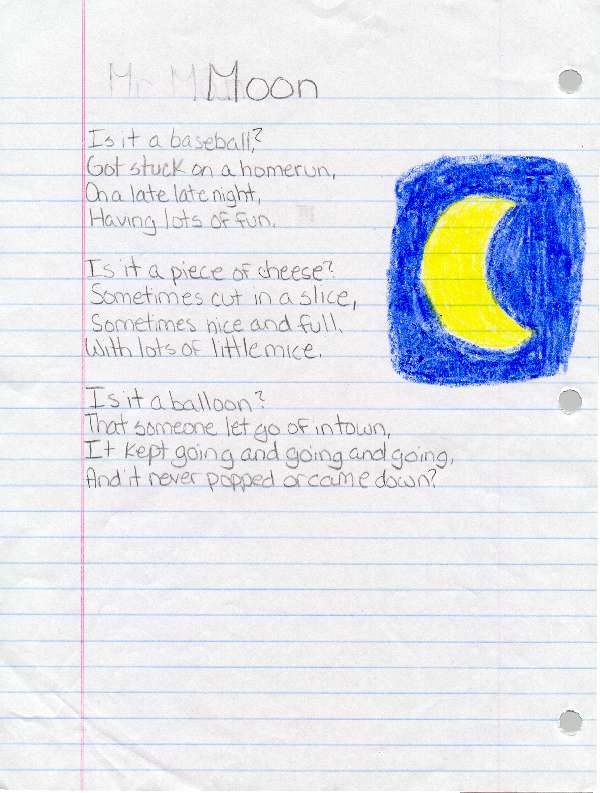 Moon
Is it a baseball?
Got stuck on a homerun,
On a late late night,
Having lots of fun.
Is it a piece of cheese?
Sometimes cut in a slice,
Sometimes nice and full,
With lots of little mice.
Is it a balloon?
That someone let go of in town,
It kept going and going and going,
And it never popped or came down?